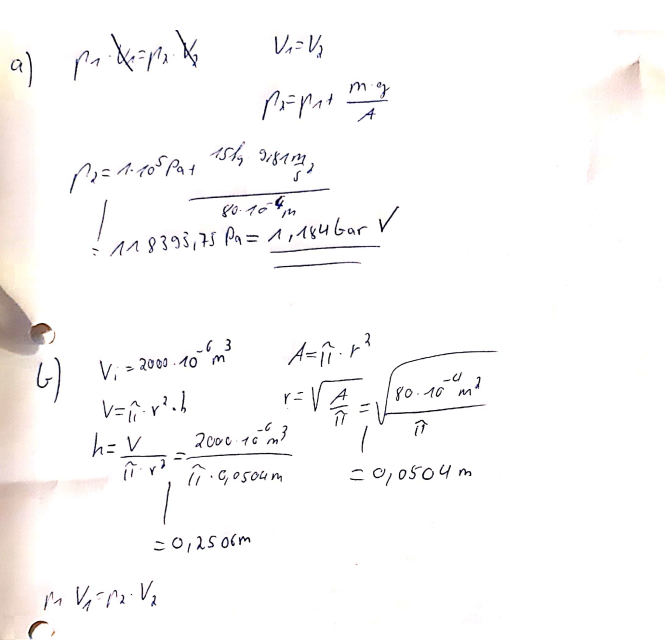 a) p₁·V₁=p₂·V₂ V₁=V₂
p₂=p₁+ m·g/A
p₂= 1·10⁵Pa+ 15kg 9,81m/s²/80·10⁻⁴m
= 118393,75 Pa = 1,184bar √
b) V₁=2000·10⁻⁶m³ A=π·r²
V=π·r²·h r=√A/π=√80·10⁻⁴m²/π
h=V/π·r²=2000·10⁻⁶m³/π·0,0504m = 0,0504m
=0,2506m
p₁ V₁=p₂·V₂